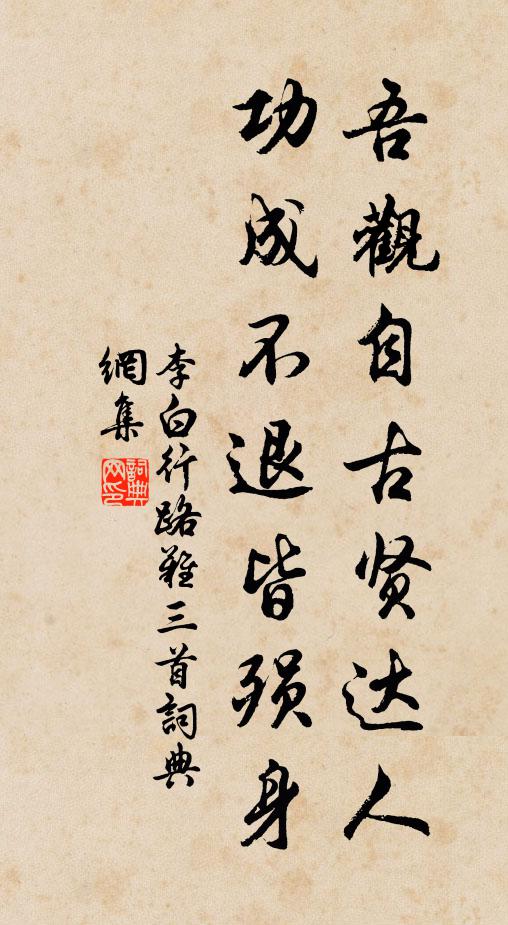 吾觀自古贤达人
功成不退皆殒身
李白行路難三首詞典
網集
詞典網印